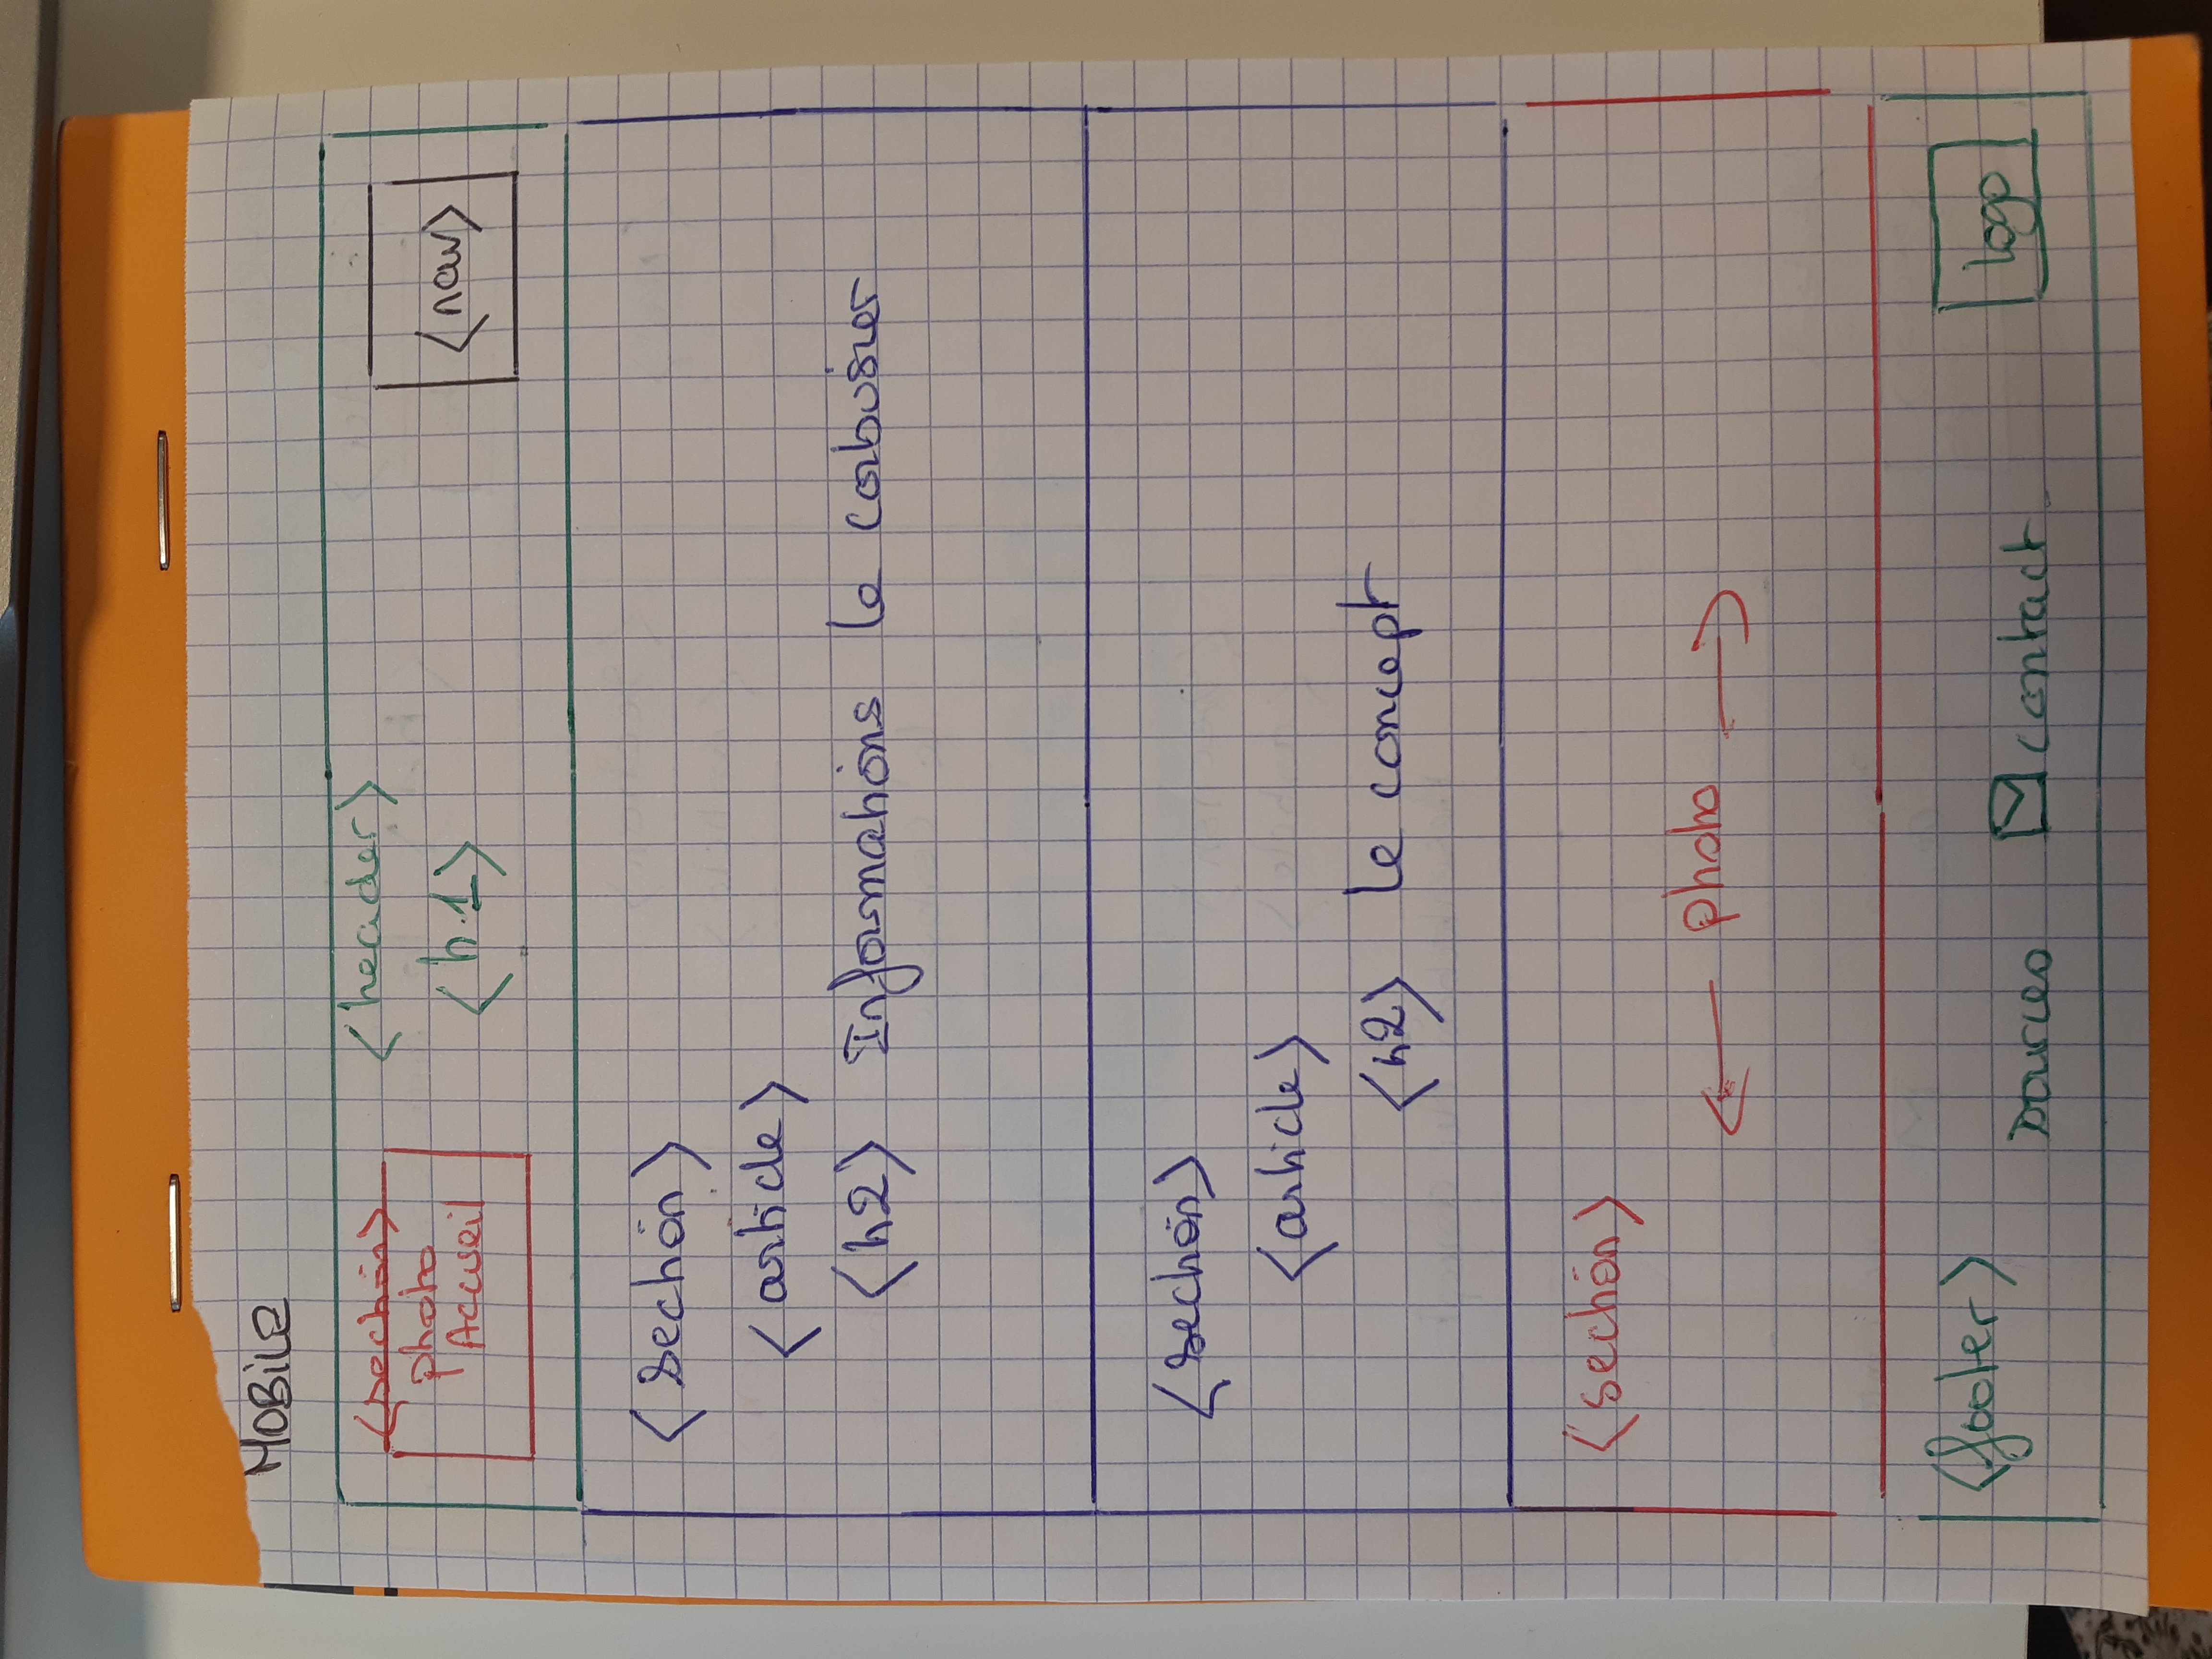 MOBILE
<section>
photo
Accueil
<header>
<h1>
<nav>
<section>
<article>
<h2> Informations le corbusier
<section>
<article>
<h2> le concept
<section>
← photo →
<footer>
sources contact
logo